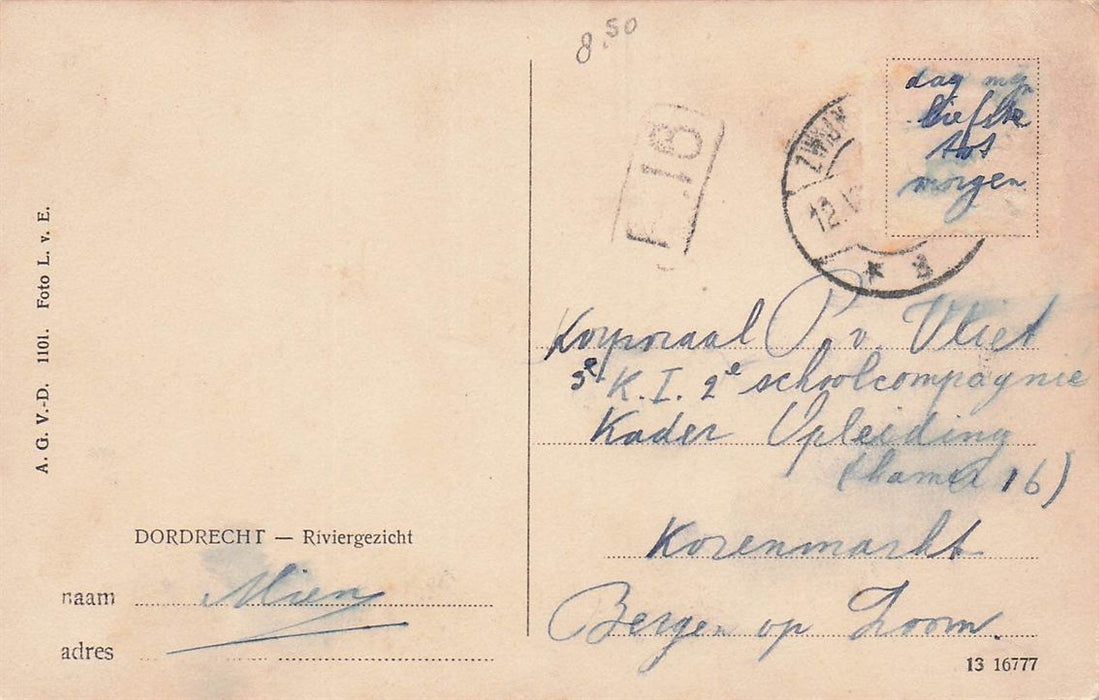 8.50
dag mijn
liefste
tot
morgen
ZWIJN
12.V
E
F 16
Korporaal P. v. Vliet
3e K.I. 2e schoolcompagnie
Kader Opleiding
(kamer 16)
Korenmarkt
Bergen op Zoom.
A. G. V.-D. 1101. Foto L. v. E.
DORDRECHT — Riviergezicht
naam Mien
adres
13 16777